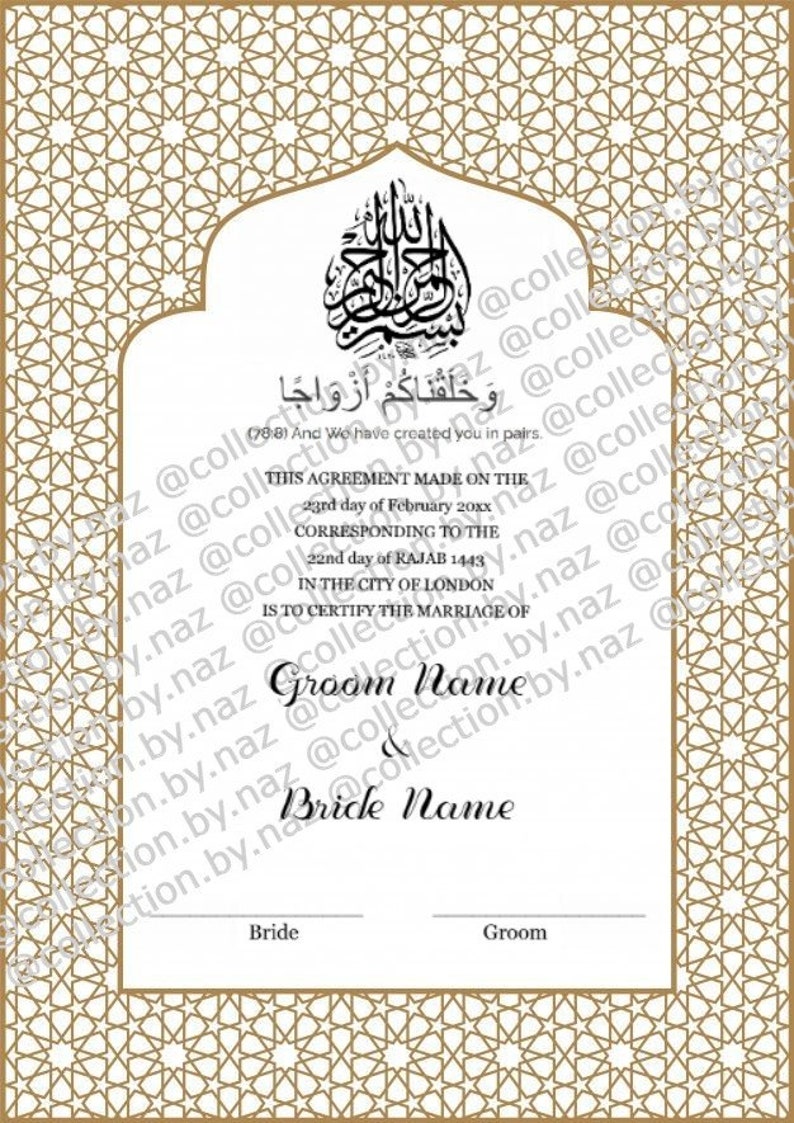 بسم الله الرحمن الرحيم
وَخَلَقْنَاكُمْ أَزْوَاجًا
(78:8) And We have created you in pairs.
THIS AGREEMENT MADE ON THE
23rd day of February 20xx
CORRESPONDING TO THE
22nd day of RAJAB 1443
IN THE CITY OF LONDON
IS TO CERTIFY THE MARRIAGE OF
Groom Name
&
Bride Name
Bride Groom
@collection.by.naz @collection.by.naz
@collection.by.naz @collection.by.naz
@collection.by.naz @collection.by.naz
@collection.by.naz @collection.by.naz
@collection.by.naz @collection.by.naz